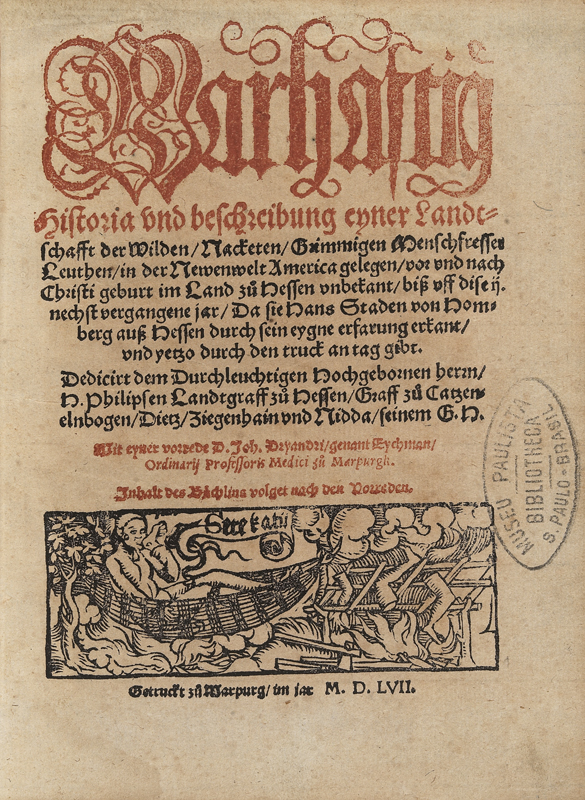 Warhaftig
Historia vnd beschreibung eyner Landt-
schafft der Wilden/Nacketen/Grimmigen Menschfresser
Leuthen/in der Newenwelt America gelegen/vor vnd nach
Christi geburt im Land zů Hessen vnbekant/biß vff dise ij.
nechst vergangene jar/Da sie Hans Staden von Hom-
berg auß Hessen durch sein eygne erfarung erkant/
vnd yetzo durch den truck an tag gibt.
Dedicirt dem Durchleuchtigen Hochgebornen herrn/
H. Philipsen Landtgraff zů Hessen/Graff zů Catzen-
elnbogen/Dietz/Ziegenhain vnd Nidda/seinem G. H.
Mit eyner vorrede D. Joh. Dryandri/genant Eychman/
Ordinarij Professoris Medici zů Marpurgk.
Inhalt des Bůchlins volget nach den Vorreden.
Sete katu
Getruckt zů Marpurg/im jar M. D. LVII.
MUSEU PAULISTA
BIBLIOTHECA
S. PAULO - BRASIL